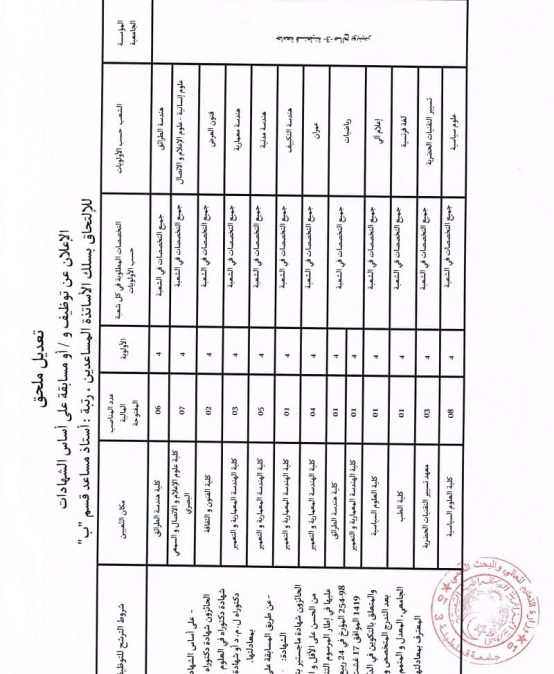 تعديل ملحق
الإعلان عن توظيف و / أو مسابقة على أساس الشهادات
للإلتحاق بسلك الأساتذة المساعدين ، رتبة : أستاذ مساعد قسم "ب"
المؤسسة الجامعية
الشعب حسب الأولويات
التخصصات المطلوبة في كل شعبة حسب الأولويات
الأولوية
عدد المناصب المالية المفتوحة
مكان التعيين
شروط الترشح للتوظيف
هندسة الطرائق جميع التخصصات في الشعبة 4 06 كلية هندسة الطرائق
علوم إنسانية - علوم الإعلام و الاتصال جميع التخصصات في الشعبة 4 07 كلية علوم الإعلام و الاتصال و السمعي البصري
فنون العرض جميع التخصصات في الشعبة 4 02 كلية الفنون و الثقافة
هندسة معمارية جميع التخصصات في الشعبة 4 03 كلية الهندسة المعمارية و التعمير
هندسة مدنية جميع التخصصات في الشعبة 4 05 كلية الهندسة المعمارية و التعمير
هندسة التكييف جميع التخصصات في الشعبة 4 01 كلية الهندسة المعمارية و التعمير
عمران جميع التخصصات في الشعبة 4 04 كلية الهندسة المعمارية و التعمير
رياضيات جميع التخصصات في الشعبة 4 01 كلية هندسة الطرائق
4 01 كلية الهندسة المعمارية و التعمير
إعلام آلي جميع التخصصات في الشعبة 4 01 كلية العلوم السياسية
لغة فرنسية جميع التخصصات في الشعبة 4 01 كلية الطب
تسيير التقنيات الحضرية جميع التخصصات في الشعبة 4 03 معهد تسيير التقنيات الحضرية
علوم سياسية جميع التخصصات في الشعبة 4 08 كلية العلوم السياسية
- على أساس الشهادة
الحائزون شهادة دكتوراه
شهادة دكتوراه في العلوم
دكتوراه ل.م.د أو شهادة
بمعادلتها.
- عن طريق المسابقة على
الشهادة:
الحائزون شهادة ماجستير
من الحسن على الأقل و
عليها في إطار المرسوم
254-98 المؤرخ في 24 ربيع
1419 الموافق 17 غشت
والمتعلق بالتكوين في
بعد التدرج المتخصص و
الجامعي، المعدل و المتمم
المعترف بمعادلتها